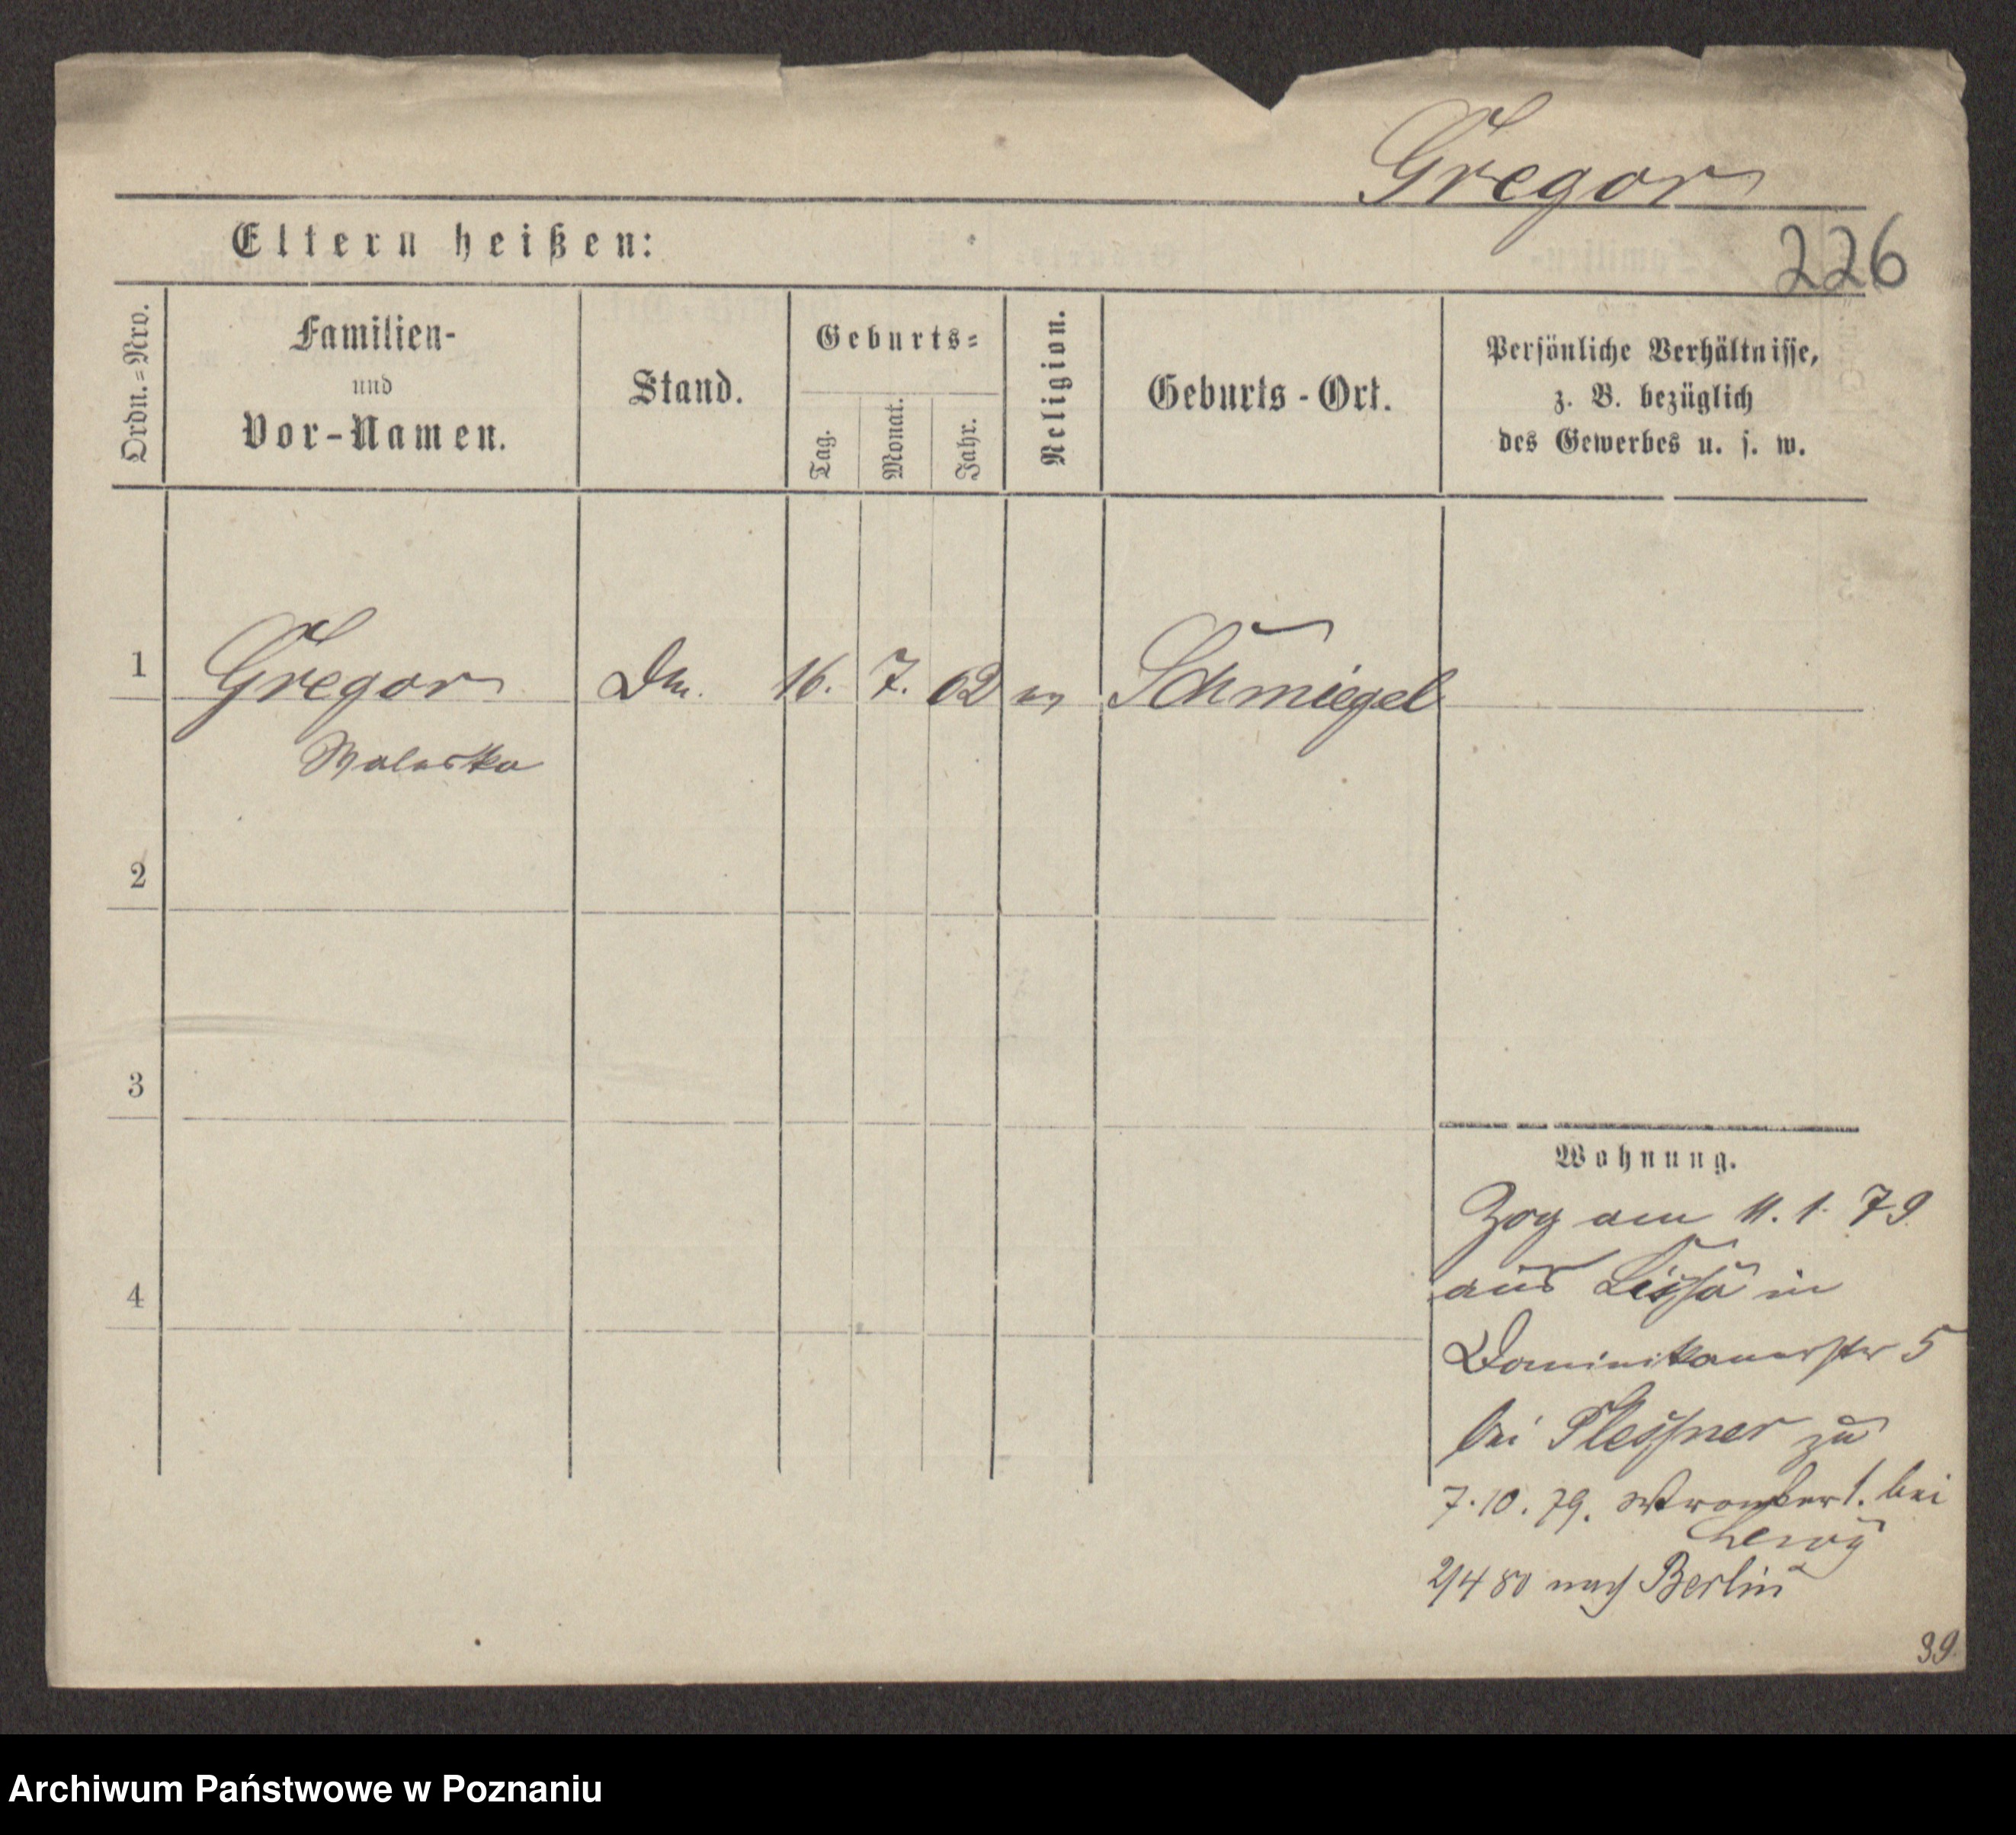 Gregor
226
Eltern heißen:
Ordn.-Nro.
Familien-
und
Vor-Namen.
Stand.
Geburts-
Tag.
Monat.
Jahr.
Religion.
Geburts-Ort.
Persönliche Verhältnisse,
z. B. bezüglich
des Gewerbes u. s. w.
1 Gregor 16. 7. 62 Schmiegel
2
3
4
Wohnung.
Zog am 11. 1. 79.
aus Lissa in
Dominikanerstr 5
bei Plessner zu
7. 10. 79. bei
2/4 80 nach Berlin
39
Archiwum Państwowe w Poznaniu